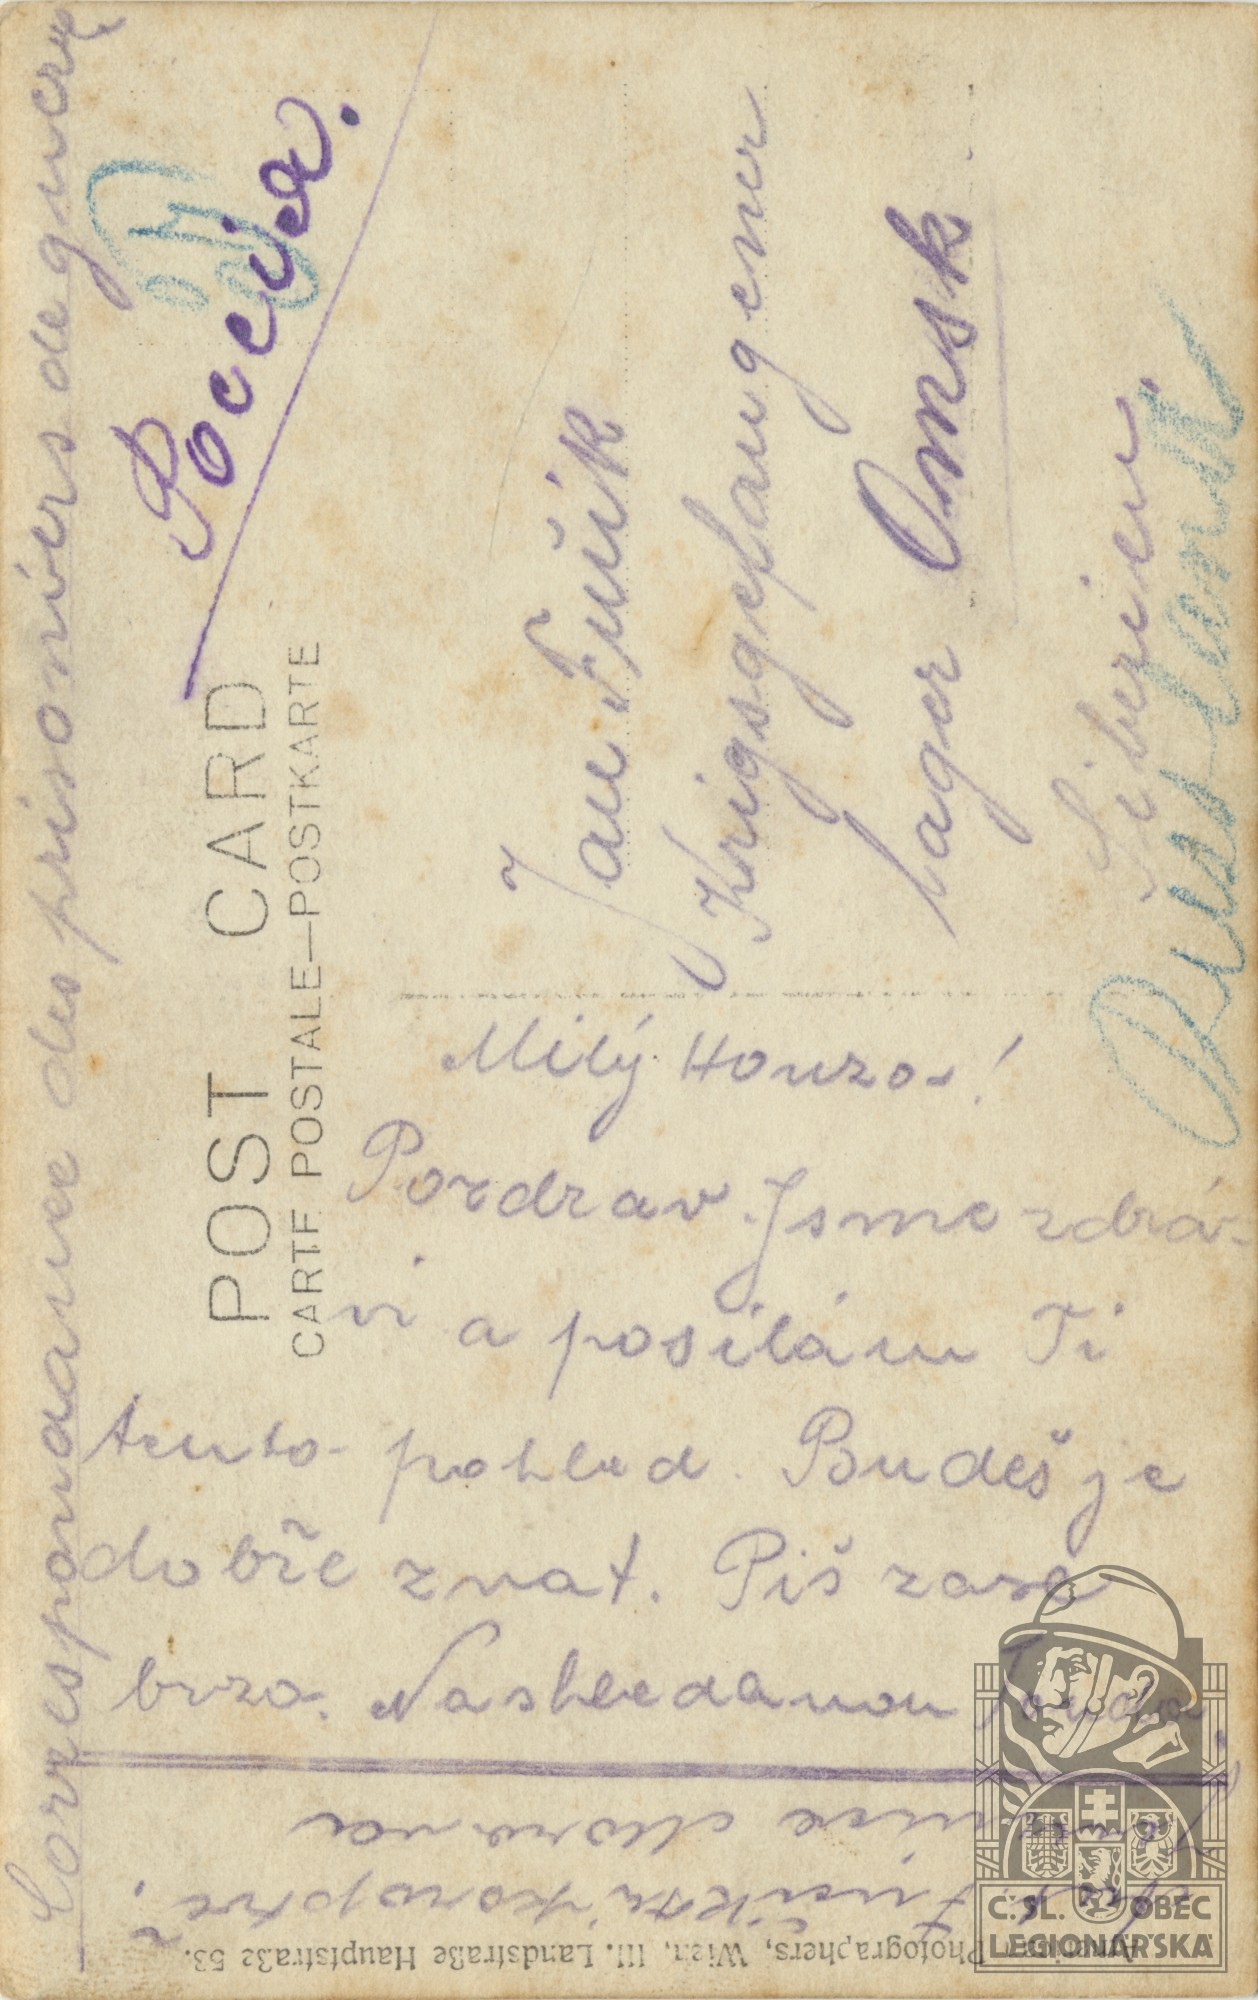 Correspondance des prisoniers de guerre
Poccia.
POST CARD
CARTE POSTALE—POSTKARTE
Jan Fučík
Krigsgefangener
lager Omsk
Sibirien.
Milý Houzo!
Pozdrav. Jsme zdrá-
vi a posílám Ti
tento pohled. Budeš je
dobře znat. Piš zase
brzo. Nashledanou
Morava
Photographers, Wien, III. Landstraße Hauptstraße 53.
Č.SL. OBEC
LEGIONÁŘSKÁ